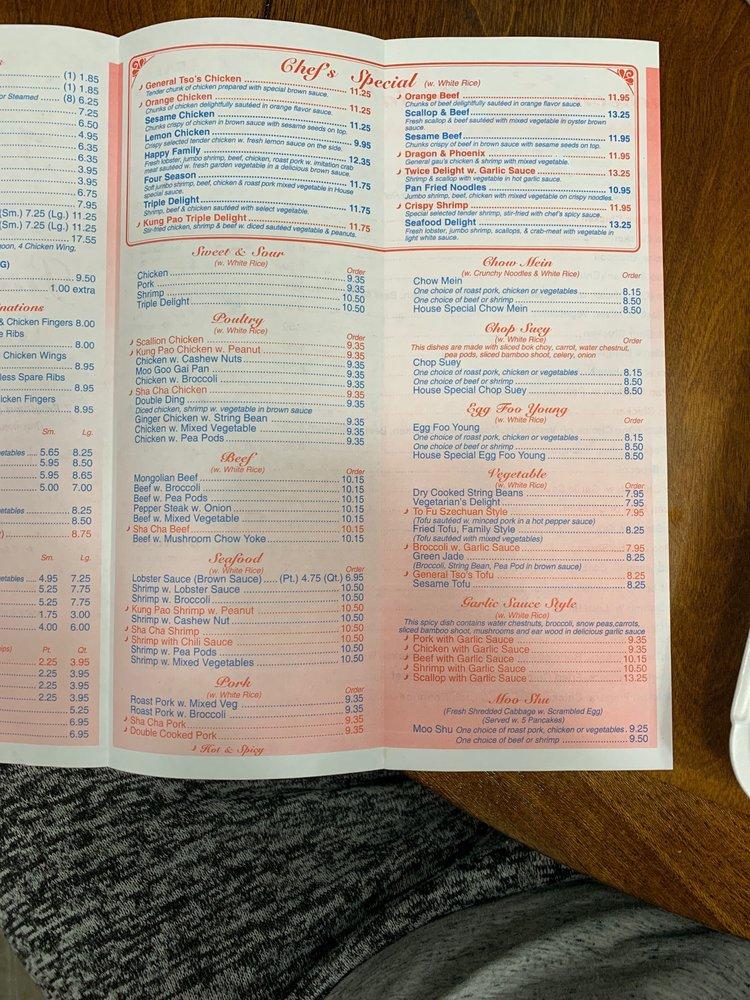 (1) 1.85
(1) 1.85
or Steamed .... (8) 6.25
7.25
6.50
4.95
6.35
6.35
3.95
3.95
6.75
7.95
(Sm.) 7.25 (Lg.) 11.25
(Sm.) 7.25 (Lg.) 11.25
17.55
4 Chicken Wing,
G)
9.50
1.00 extra
nations
& Chicken Fingers 8.00
e Ribs
8.00
Chicken Wings
8.95
less Spare Ribs
8.95
icken Fingers
8.95
Sm. Lg.
etables .... 5.65 8.25
5.95 8.50
5.95 8.65
5.00 7.00
etables 8.25
8.50
8.75
Sm. Lg.
etables .... 4.95 7.25
5.25 7.75
5.25 7.75
1.75 3.00
4.00 6.00
Pt. Qt.
2.25 3.95
2.25 3.95
2.25 3.95
2.25 3.95
5.25
6.95
6.95
Chef's Special (w. White Rice)
General Tso's Chicken 11.25
Tender chunk of chicken prepared with special brown sauce.
Orange Chicken 11.25
Chunks of chicken delightfully sautéed in orange flavor sauce.
Sesame Chicken 11.25
Chunks crispy of chicken in brown sauce with sesame seeds on top.
Lemon Chicken 9.95
Crispy selected tender chicken w. fresh lemon sauce on the side.
Happy Family 12.35
Fresh lobster, jumbo shrimp, beef, chicken, roast pork w. imitation crab
meat sautéed w. fresh garden vegetable in a delicious brown sauce.
Four Season 11.75
Soft jumbo shrimp, beef, chicken & roast pork mixed vegetable in House
special sauce.
Triple Delight 11.75
Shrimp, beef & chicken sautéed with select vegetable.
Kung Pao Triple Delight 11.75
Stir-fried chicken, shrimp & beef w. diced sautéed vegetable & peanuts.
Orange Beef 11.95
Chunks of beef delightfully sautéed in orange flavor sauce.
Scallop & Beef 13.25
Fresh scallop & beef sautéed with mixed vegetable in oyster brown
sauce.
Sesame Beef 11.95
Chunks crispy of beef in brown sauce with sesame seeds on top.
Dragon & Phoenix 11.95
General gau's chicken & shrimp with mixed vegetable.
Twice Delight w. Garlic Sauce 13.25
Shrimp & scallop with vegetable in hot garlic sauce.
Pan Fried Noodles 10.95
Jumbo shrimp, beef, chicken with mixed vegetable on crispy noodles.
Crispy Shrimp 11.95
Special selected tender shrimp, stir-fried with chef's spicy sauce.
Seafood Delight 13.25
Fresh lobster, jumbo shrimp, scallops, & crab-meat with vegetable in
light white sauce.
Sweet & Sour
(w. White Rice) Order
Chicken 9.35
Pork 9.35
Shrimp 10.50
Triple Delight 10.50
Poultry
(w. White Rice) Order
Scallion Chicken 9.35
Kung Pao Chicken w. Peanut 9.35
Chicken w. Cashew Nuts 9.35
Moo Goo Gai Pan 9.35
Chicken w. Broccoli 9.35
Sha Cha Chicken 9.35
Double Ding 9.35
Diced chicken, shrimp w. vegetable in brown sauce
Ginger Chicken w. String Bean 9.35
Chicken w. Mixed Vegetable 9.35
Chicken w. Pea Pods 9.35
Beef
(w. White Rice) Order
Mongolian Beef 10.15
Beef w. Broccoli 10.15
Beef w. Pea Pods 10.15
Pepper Steak w. Onion 10.15
Beef w. Mixed Vegetable 10.15
Sha Cha Beef 10.15
Beef w. Mushroom Chow Yoke 10.15
Seafood
(w. White Rice) Order
Lobster Sauce (Brown Sauce) .... (Pt.) 4.75 (Qt.) 6.95
Shrimp w. Lobster Sauce 10.50
Shrimp w. Broccoli 10.50
Kung Pao Shrimp w. Peanut 10.50
Shrimp w. Cashew Nut 10.50
Sha Cha Shrimp 10.50
Shrimp with Chili Sauce 10.50
Shrimp w. Pea Pods 10.50
Shrimp w. Mixed Vegetables 10.50
Pork
(w. White Rice) Order
Roast Pork w. Mixed Veg 9.35
Roast Pork w. Broccoli 9.35
Sha Cha Pork 9.35
Double Cooked Pork 9.35
Hot & Spicy
Chow Mein
(w. Crunchy Noodles & White Rice) Order
Chow Mein
One choice of roast pork, chicken or vegetables 8.15
One choice of beef or shrimp 8.50
House Special Chow Mein 8.50
Chop Suey
(w. White Rice) Order
This dishes are made with sliced bok choy, carrot, water chestnut,
pea pods, sliced bamboo shoot, celery, onion
Chop Suey
One choice of roast pork, chicken or vegetables 8.15
One choice of beef or shrimp 8.50
House Special Chop Suey 8.50
Egg Foo Young
(w. White Rice) Order
Egg Foo Young
One choice of roast pork, chicken or vegetables 8.15
One choice of beef or shrimp 8.50
House Special Egg Foo Young 8.50
Vegetable
(w. White Rice) Order
Dry Cooked String Beans 7.95
Vegetarian's Delight 7.95
To Fu Szechuan Style 7.95
(Tofu sautéed w. minced pork in a hot pepper sauce)
Fried Tofu, Family Style 8.25
(Tofu sautéed with mixed vegetables)
Broccoli w. Garlic Sauce 7.95
Green Jade 8.25
(Broccoli, String Bean, Pea Pod in brown sauce)
General Tso's Tofu 8.25
Sesame Tofu 8.25
Garlic Sauce Style
(w. White Rice)
This spicy dish contains water chestnuts, broccoli, snow peas, carrots,
sliced bamboo shoot, mushrooms and ear wood in delicious garlic sauce
Pork with Garlic Sauce 9.35
Chicken with Garlic Sauce 9.35
Beef with Garlic Sauce 10.15
Shrimp with Garlic Sauce 10.50
Scallop with Garlic Sauce 13.25
Moo Shu
(Fresh Shredded Cabbage w. Scrambled Egg)
(Served w. 5 Pancakes)
Moo Shu One choice of roast pork, chicken or vegetables . 9.25
One choice of beef or shrimp 9.50